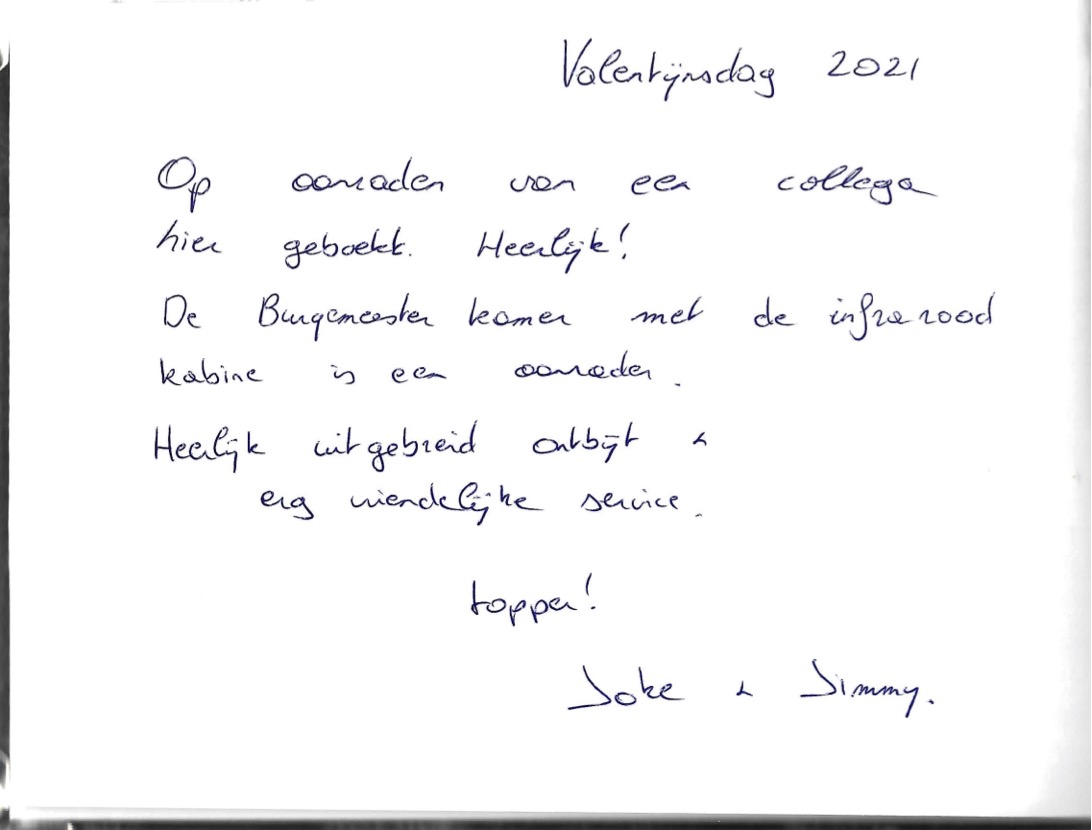 Valentijnsdag 2021
Op aanraden van een collega
hier geboekt. Heerlijk!
De Burgemeester kamer met de infra rood
kabine is een aanrader.
Heerlijk uitgebreid ontbijt &
erg vriendelijke service.
topper!
Joke & Jimmy.